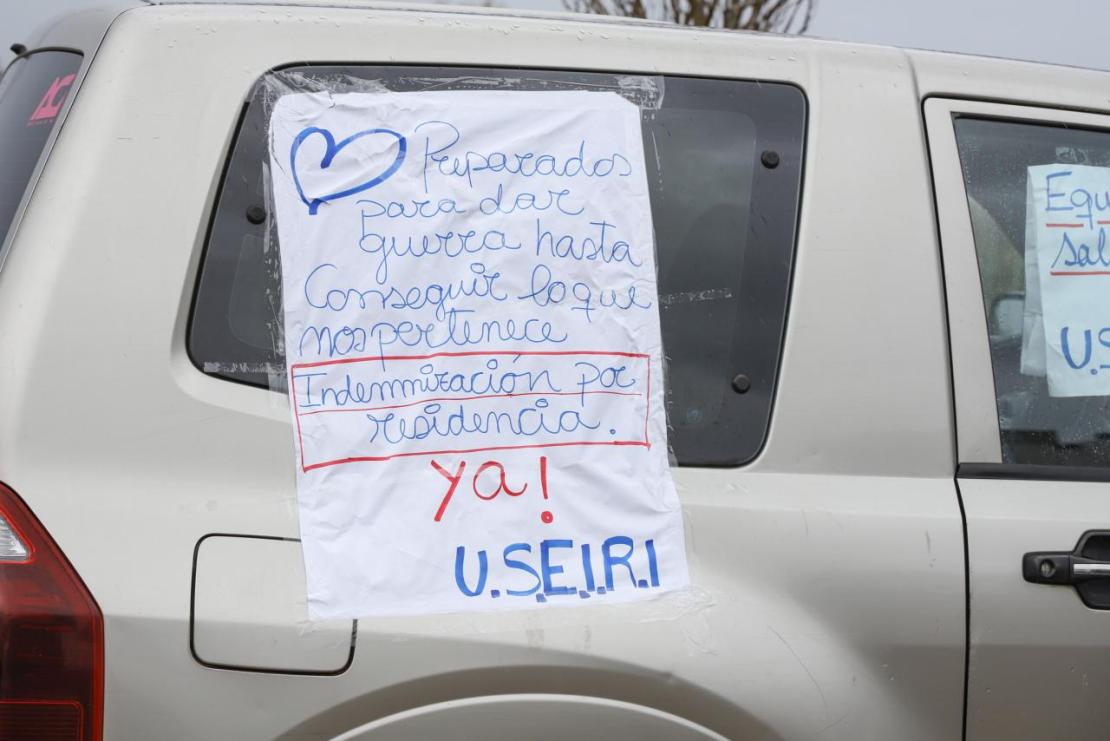 Preparados
para dar
guerra hasta
Conseguir lo que
nos pertenece
Indemnización por
residencia.
ya!
U.S.E.I.R.I
Equ
Sal
U.S
AC